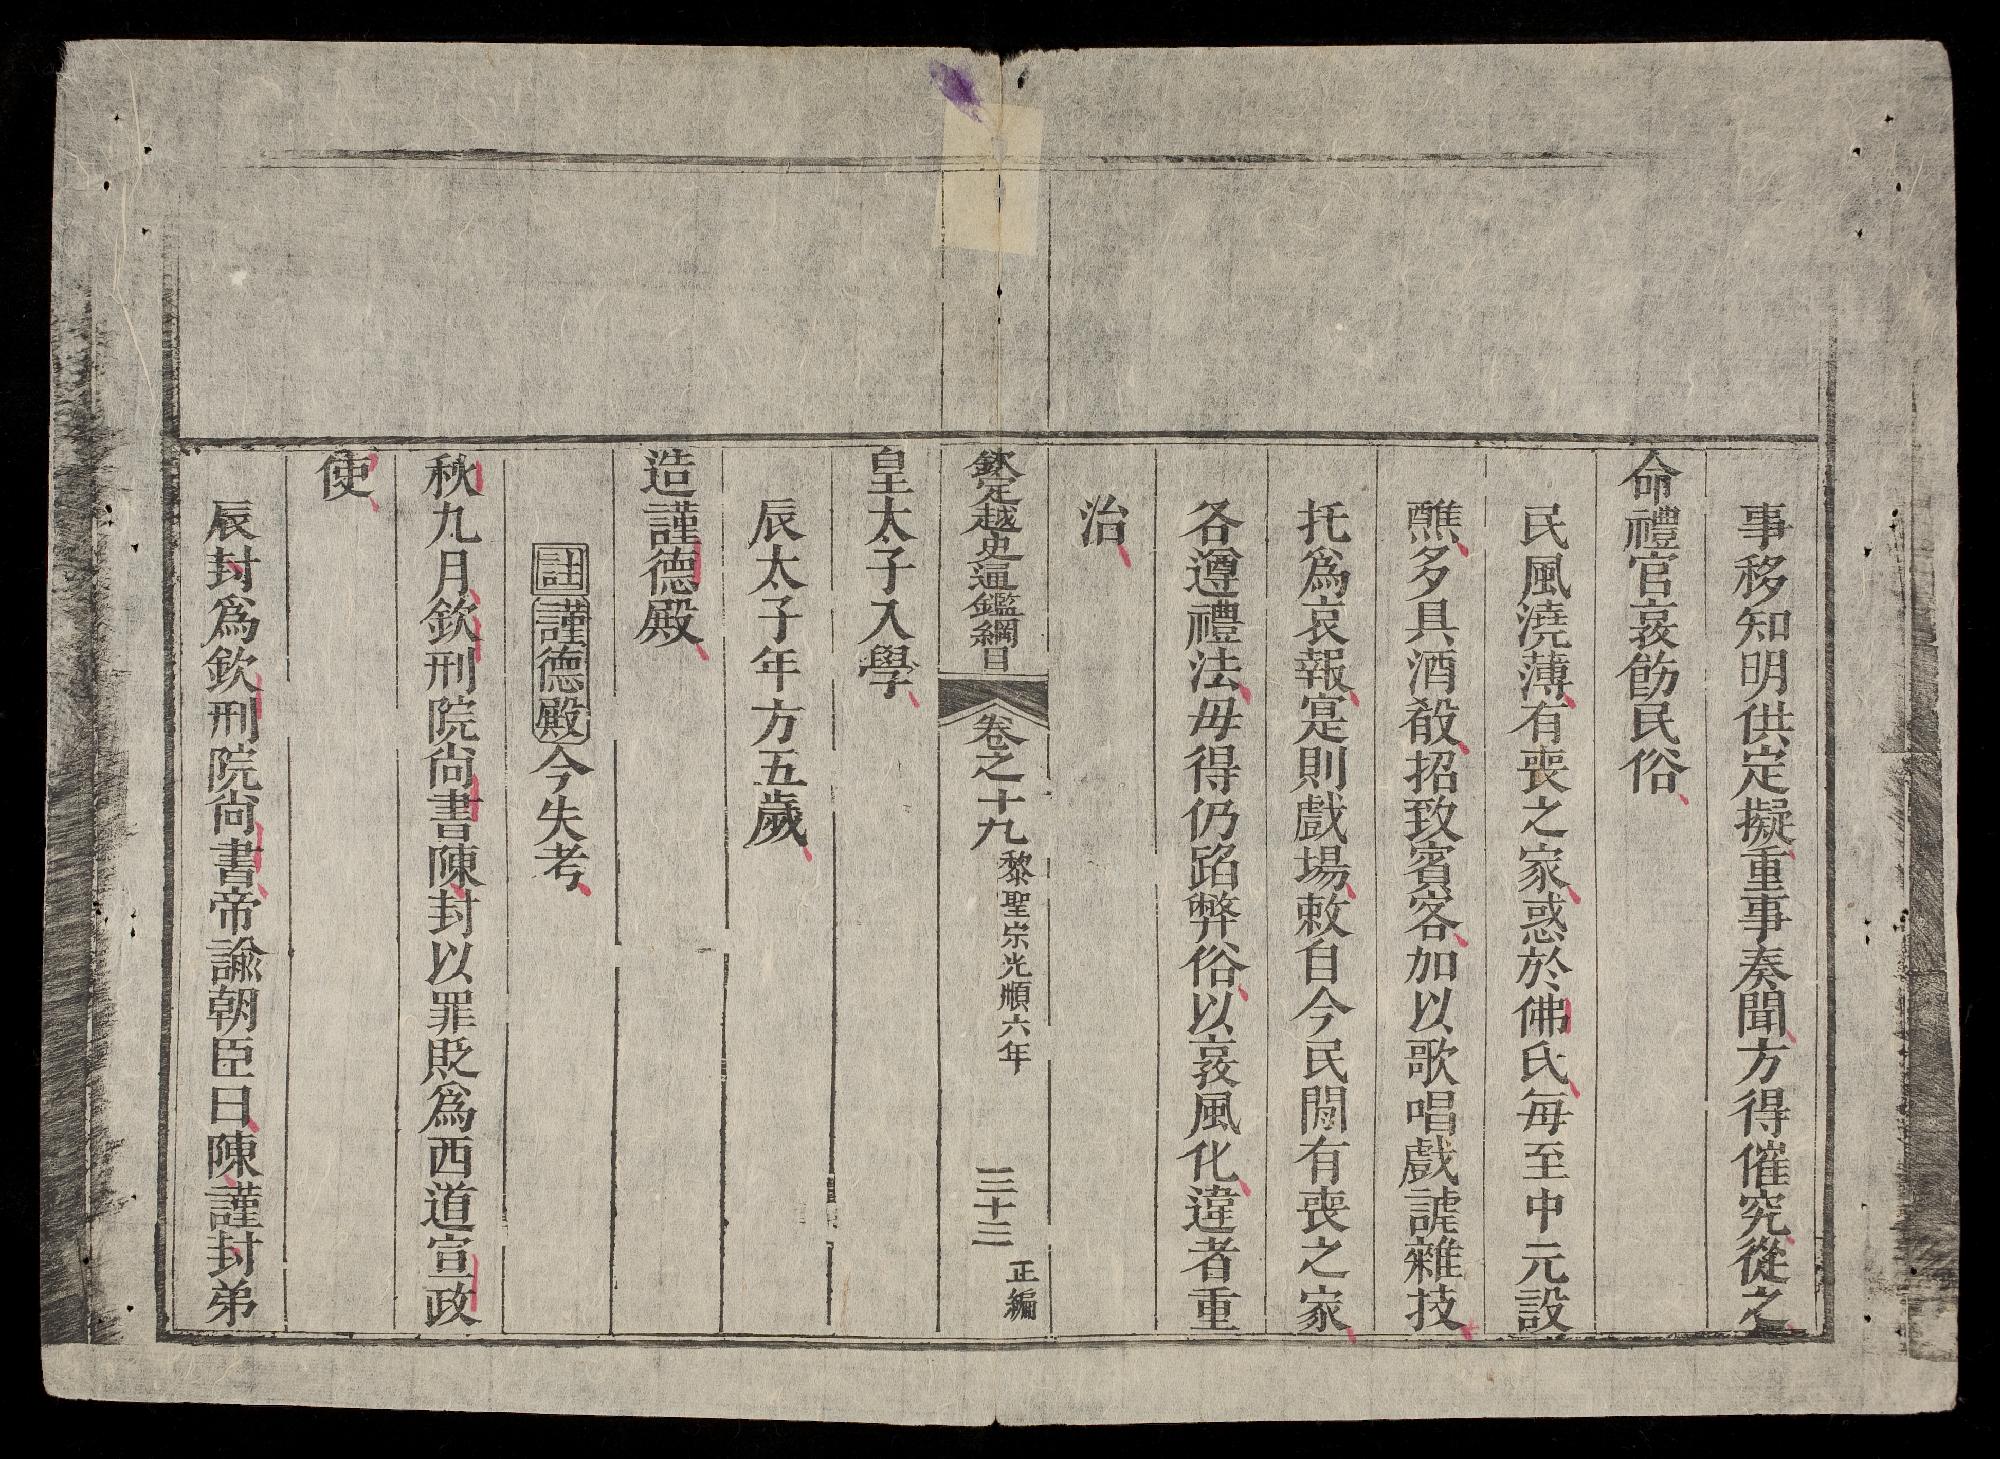 事移知明供定擬重事奏聞方得催究從之
命禮官裒飭民俗
民風澆薄有喪之家惑於佛氏每至中元設
醮多具酒殽招致賓客加以歌唱戲謔雜技
托爲哀報寔則戲場敕自今民間有喪之家
各遵禮法毋得仍蹈弊俗以裒風化違者重
治
欽定越史通鑑綱目 卷之十九 黎聖宗光順六年 三十三 正編
皇太子入學
辰太子年方五歲
造謹德殿
註謹德殿今失考
秋九月欽刑院尚書陳封以罪貶爲西道宣政
使
辰封爲欽刑院尚書帝諭朝臣曰陳謹封弟